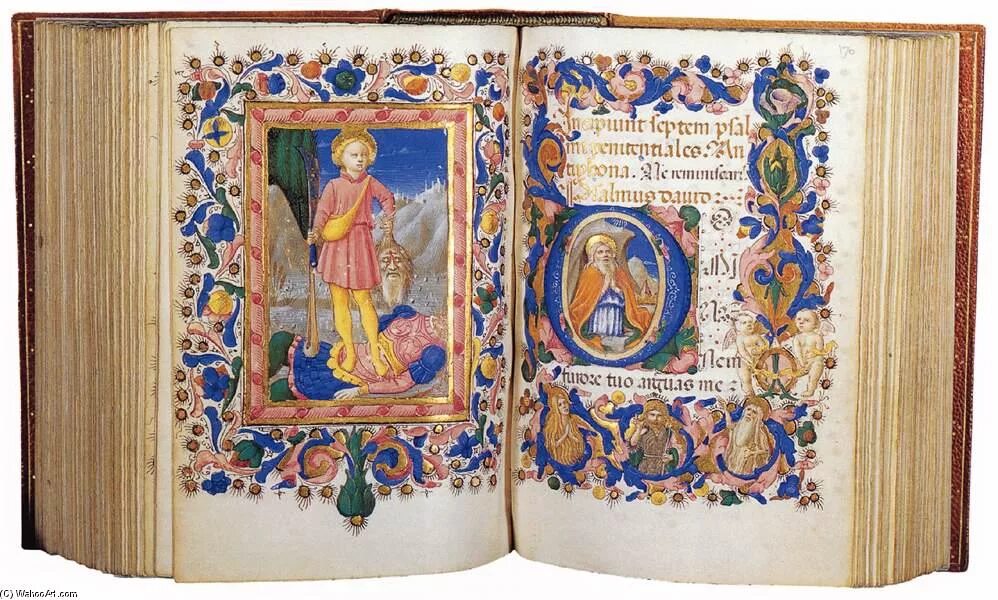 Incipiunt septem psal
mi penitentiales. An
tiphona. Ne reminiscari
Psalmus dauid :
D
Ne in
furore tuo arguas me :
(C) WahooArt.com